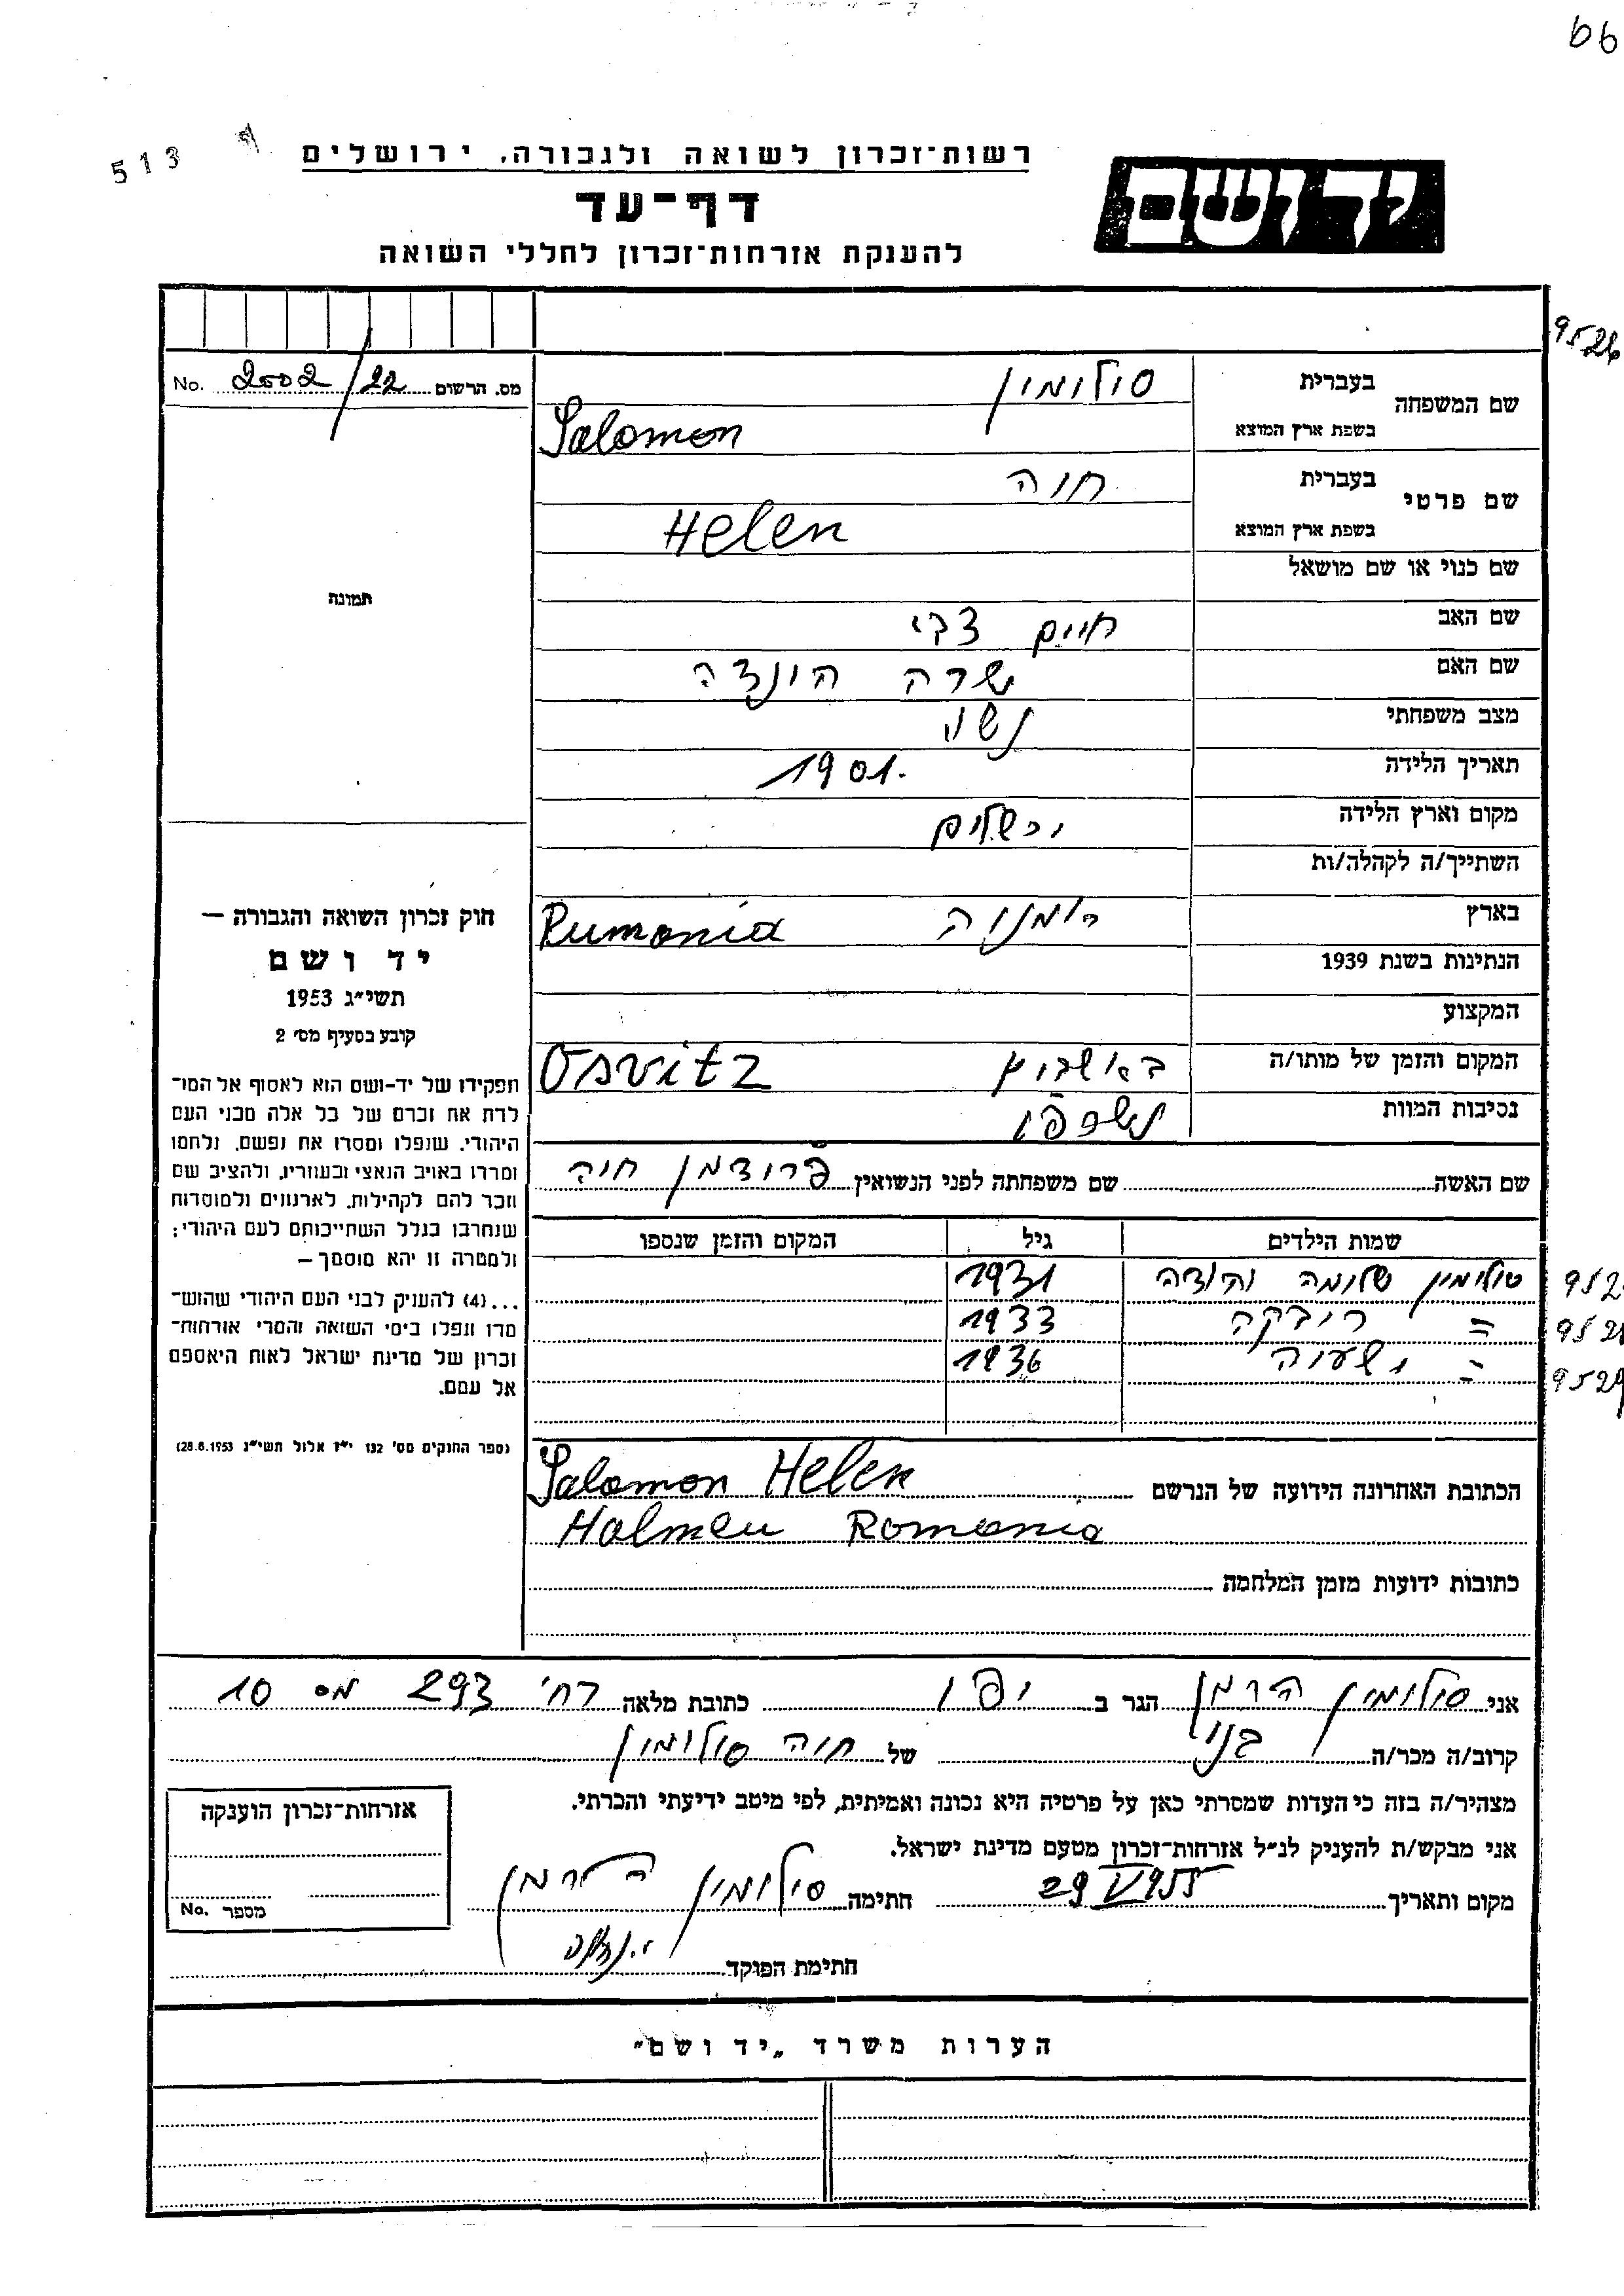 66
513
רשות־זכרון לשואה ולגבורה, ירושלים
יד ושם
דף־עד
להענקת אזרחות־זכרון לחללי השואה
9526
No. 2002/22 מס. הרשום
שם המשפחה בעברית סולומון
בשפת ארץ המוצא Salomon
שם פרטי בעברית חוה
בשפת ארץ המוצא Helen
שם כנוי או שם מושאל
תמונה
שם האב חיים צבי
שם האם שרה הינדה
מצב משפחתי נשוי
תאריך הלידה 1901.
מקום וארץ הלידה
השתייך/ה לקהלה/ות
בארץ רומניה Rumania
הנתינות בשנת 1939
המקצוע
המקום והזמן של מותו/ה באשויץ Osvitz
נסיבות המוות
חוק זכרון השואה והגבורה —
יד ושם
תשי״ג 1953
קובע בסעיף מס׳ 2
תפקידו של יד-ושם הוא לאסוף אל המו־
לדת את זכרם של כל אלה מבני העם
היהודי, שנפלו ומסרו את נפשם, נלחמו
ומרדו באויב הנאצי ובעוזריו, ולהציב שם
וזכר להם לקהילות, לארגונים ולמוסדות
שנחרבו בגלל השתייכותם לעם היהודי;
ולמטרה זו יהא מוסמך —
...(4) להעניק לבני העם היהודי שהוש־
מדו ונפלו בימי השואה והמרי אזרחות־
זכרון של מדינת ישראל לאות היאספם
אל עמם.
(ספר החוקים מס׳ 132 י״ז אלול תשי״ג 28.8.1953)
שם האשה שם משפחתה לפני הנשואין פרודמן חיה
שמות הילדים גיל המקום והזמן שנספו
סולומון שלומה יהודה 1931 952
= רובקה 1933 952
= ישעיה 1936 9529
הכתובת האחרונה הידועה של הנרשם Salomon Helen
Halmeu Romania
כתובות ידועות מזמן המלחמה
אני סולומון הרמן הגר ב יפו כתובת מלאה רח׳ 293 מס 10
קרוב/ה מכר/ה בנו של חוה סולומון
מצהיר/ה בזה כי העדות שמסרתי כאן על פרטיה היא נכונה ואמיתית, לפי מיטב ידיעתי והכרתי.
אני מבקש/ת להעניק לנ״ל אזרחות־זכרון מטעם מדינת ישראל.
מקום ותאריך 29 V 955 חתימה סולומון הרמן
חתימת הפוקד
אזרחות־זכרון הוענקה
No. מספר
הערות משרד „יד ושם״